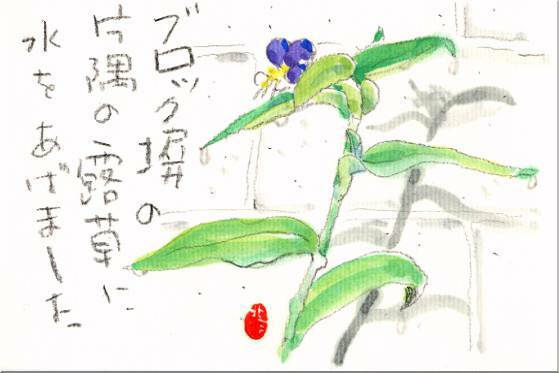 ブロック塀の
片隅の露草に
水をあげました